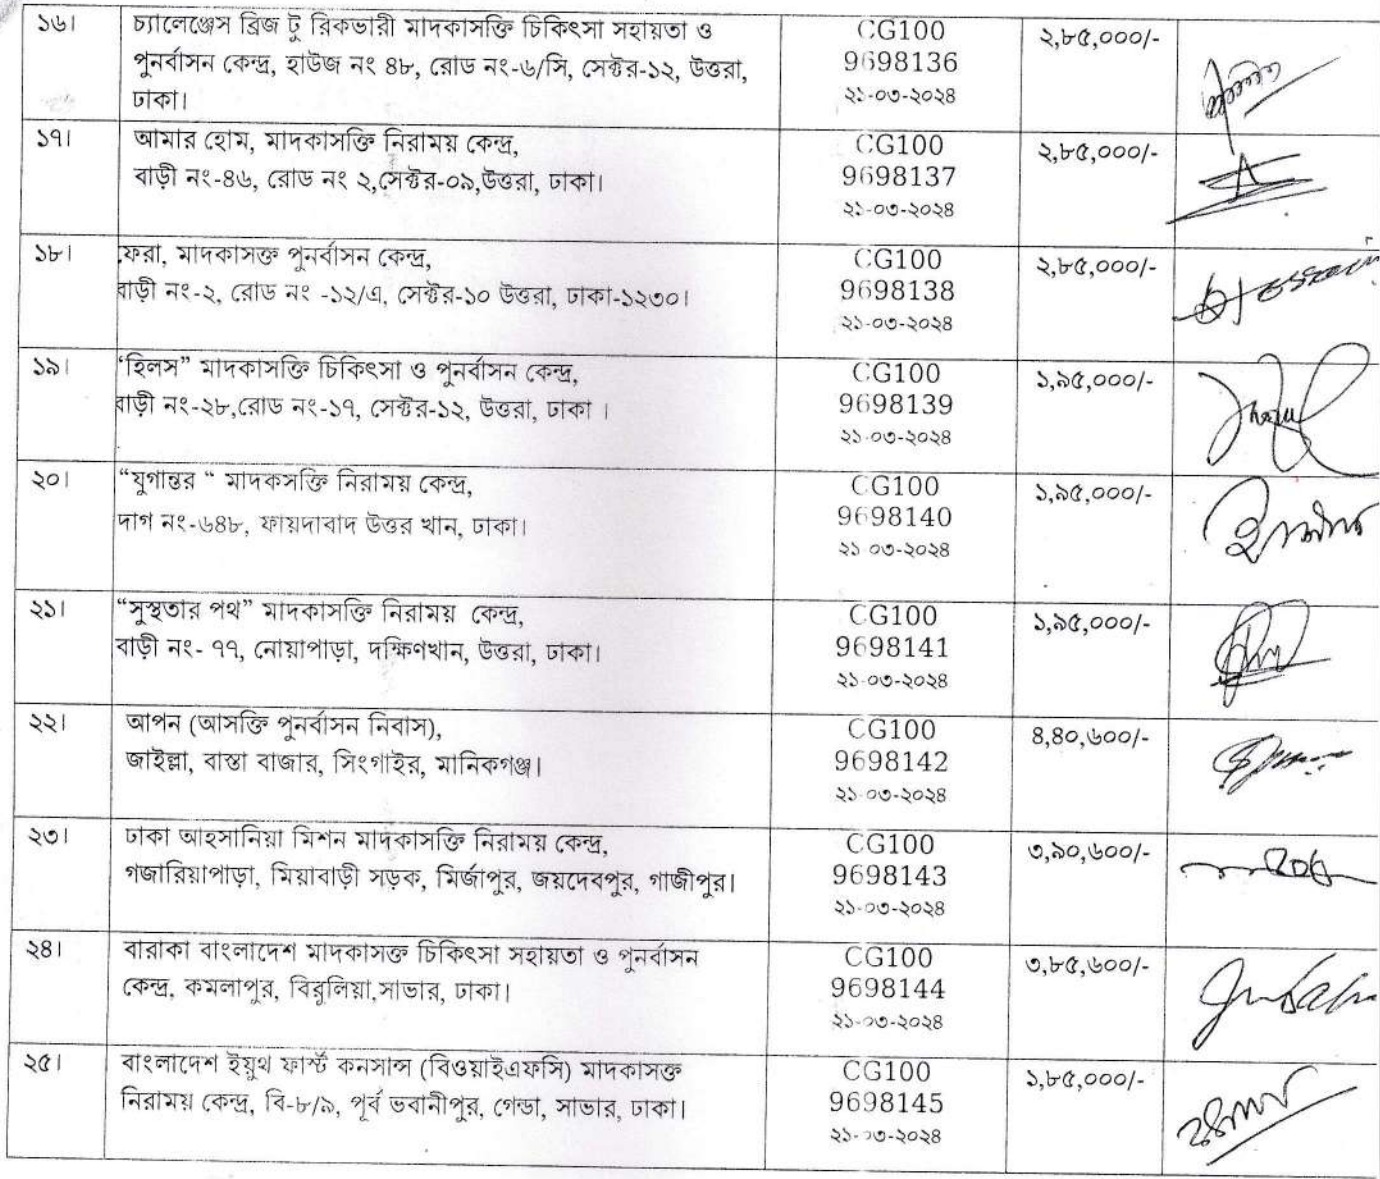 ১৬।
চ্যালেঞ্জেস ব্রিজ টু রিকভারী মাদকাসক্তি চিকিৎসা সহায়তা ও
পুনর্বাসন কেন্দ্র, হাউজ নং ৪৮, রোড নং-৬/সি, সেক্টর-১২, উত্তরা,
ঢাকা।
CG100
9698136
২১-০৩-২০২৪
২,৮৫,০০০/-
১৭।
আমার হোম, মাদকাসক্তি নিরাময় কেন্দ্র,
বাড়ী নং-৪৬, রোড নং ২,সেক্টর-০৯,উত্তরা, ঢাকা।
CG100
9698137
২১-০৩-২০২৪
২,৮৫,০০০/-
১৮।
ফেরা, মাদকাসক্ত পুনর্বাসন কেন্দ্র,
বাড়ী নং-২, রোড নং -১২/এ, সেক্টর-১০ উত্তরা, ঢাকা-১২৩০।
CG100
9698138
২১-০৩-২০২৪
২,৮৫,০০০/-
১৯।
“হিলস” মাদকাসক্তি চিকিৎসা ও পুনর্বাসন কেন্দ্র,
বাড়ী নং-২৮,রোড নং-১৭, সেক্টর-১২, উত্তরা, ঢাকা ।
CG100
9698139
২১-০৩-২০২৪
১,৯৫,০০০/-
২০।
“যুগান্তর “ মাদকসক্তি নিরাময় কেন্দ্র,
দাগ নং-৬৪৮, ফায়দাবাদ উত্তর খান, ঢাকা।
CG100
9698140
২১-০৩-২০২৪
১,৯৫,০০০/-
২১।
“সুস্থতার পথ” মাদকাসক্তি নিরাময় কেন্দ্র,
বাড়ী নং- ৭৭, নোয়াপাড়া, দক্ষিণখান, উত্তরা, ঢাকা।
CG100
9698141
২১-০৩-২০২৪
১,৯৫,০০০/-
২২।
আপন (আসক্তি পুনর্বাসন নিবাস),
জাইল্লা, বাস্তা বাজার, সিংগাইর, মানিকগঞ্জ।
CG100
9698142
২১-০৩-২০২৪
৪,৪০,৬০০/-
২৩।
ঢাকা আহসানিয়া মিশন মাদকাসক্তি নিরাময় কেন্দ্র,
গজারিয়াপাড়া, মিয়াবাড়ী সড়ক, মির্জাপুর, জয়দেবপুর, গাজীপুর।
CG100
9698143
২১-০৩-২০২৪
৩,৯০,৬০০/-
২৪।
বারাকা বাংলাদেশ মাদকাসক্ত চিকিৎসা সহায়তা ও পুনর্বাসন
কেন্দ্র, কমলাপুর, বিরুলিয়া,সাভার, ঢাকা।
CG100
9698144
২১-০৩-২০২৪
৩,৮৫,৬০০/-
২৫।
বাংলাদেশ ইয়ুথ ফার্স্ট কনসান্স (বিওয়াইএফসি) মাদকাসক্ত
নিরাময় কেন্দ্র, বি-৮/৯, পূর্ব ভবানীপুর, গেন্ডা, সাভার, ঢাকা।
CG100
9698145
২১-০৩-২০২৪
১,৮৫,০০০/-